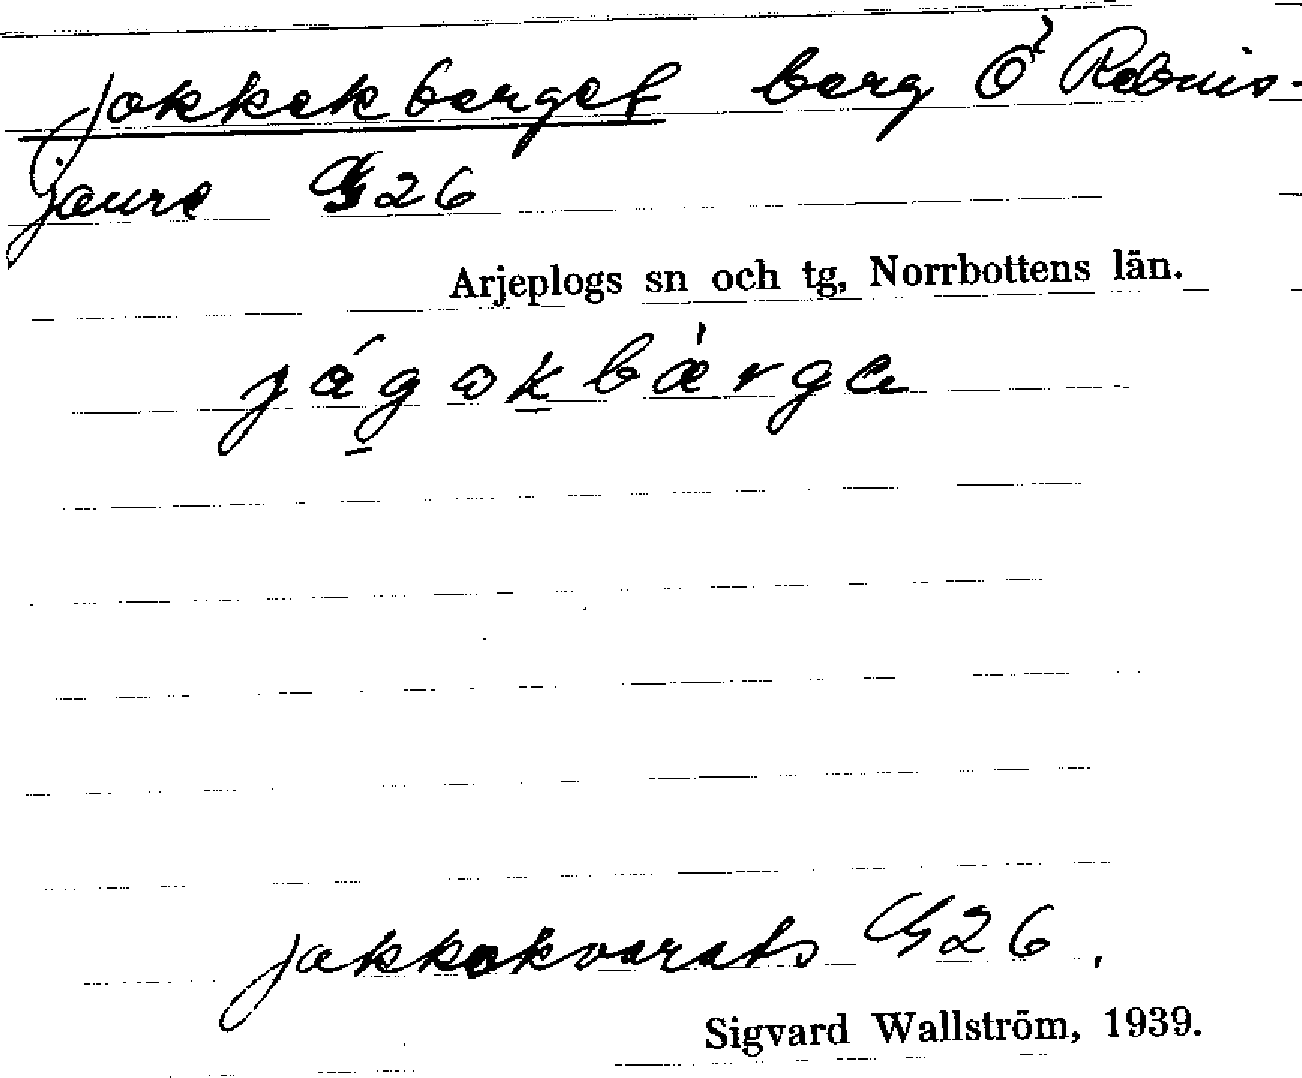 Jokkekberget berg Ö Rebnis-
jaure G26
Arjeplogs sn och tg, Norrbottens län.
jágokbärga
Jakkokvarats G26.
Sigvard Wallström, 1939.